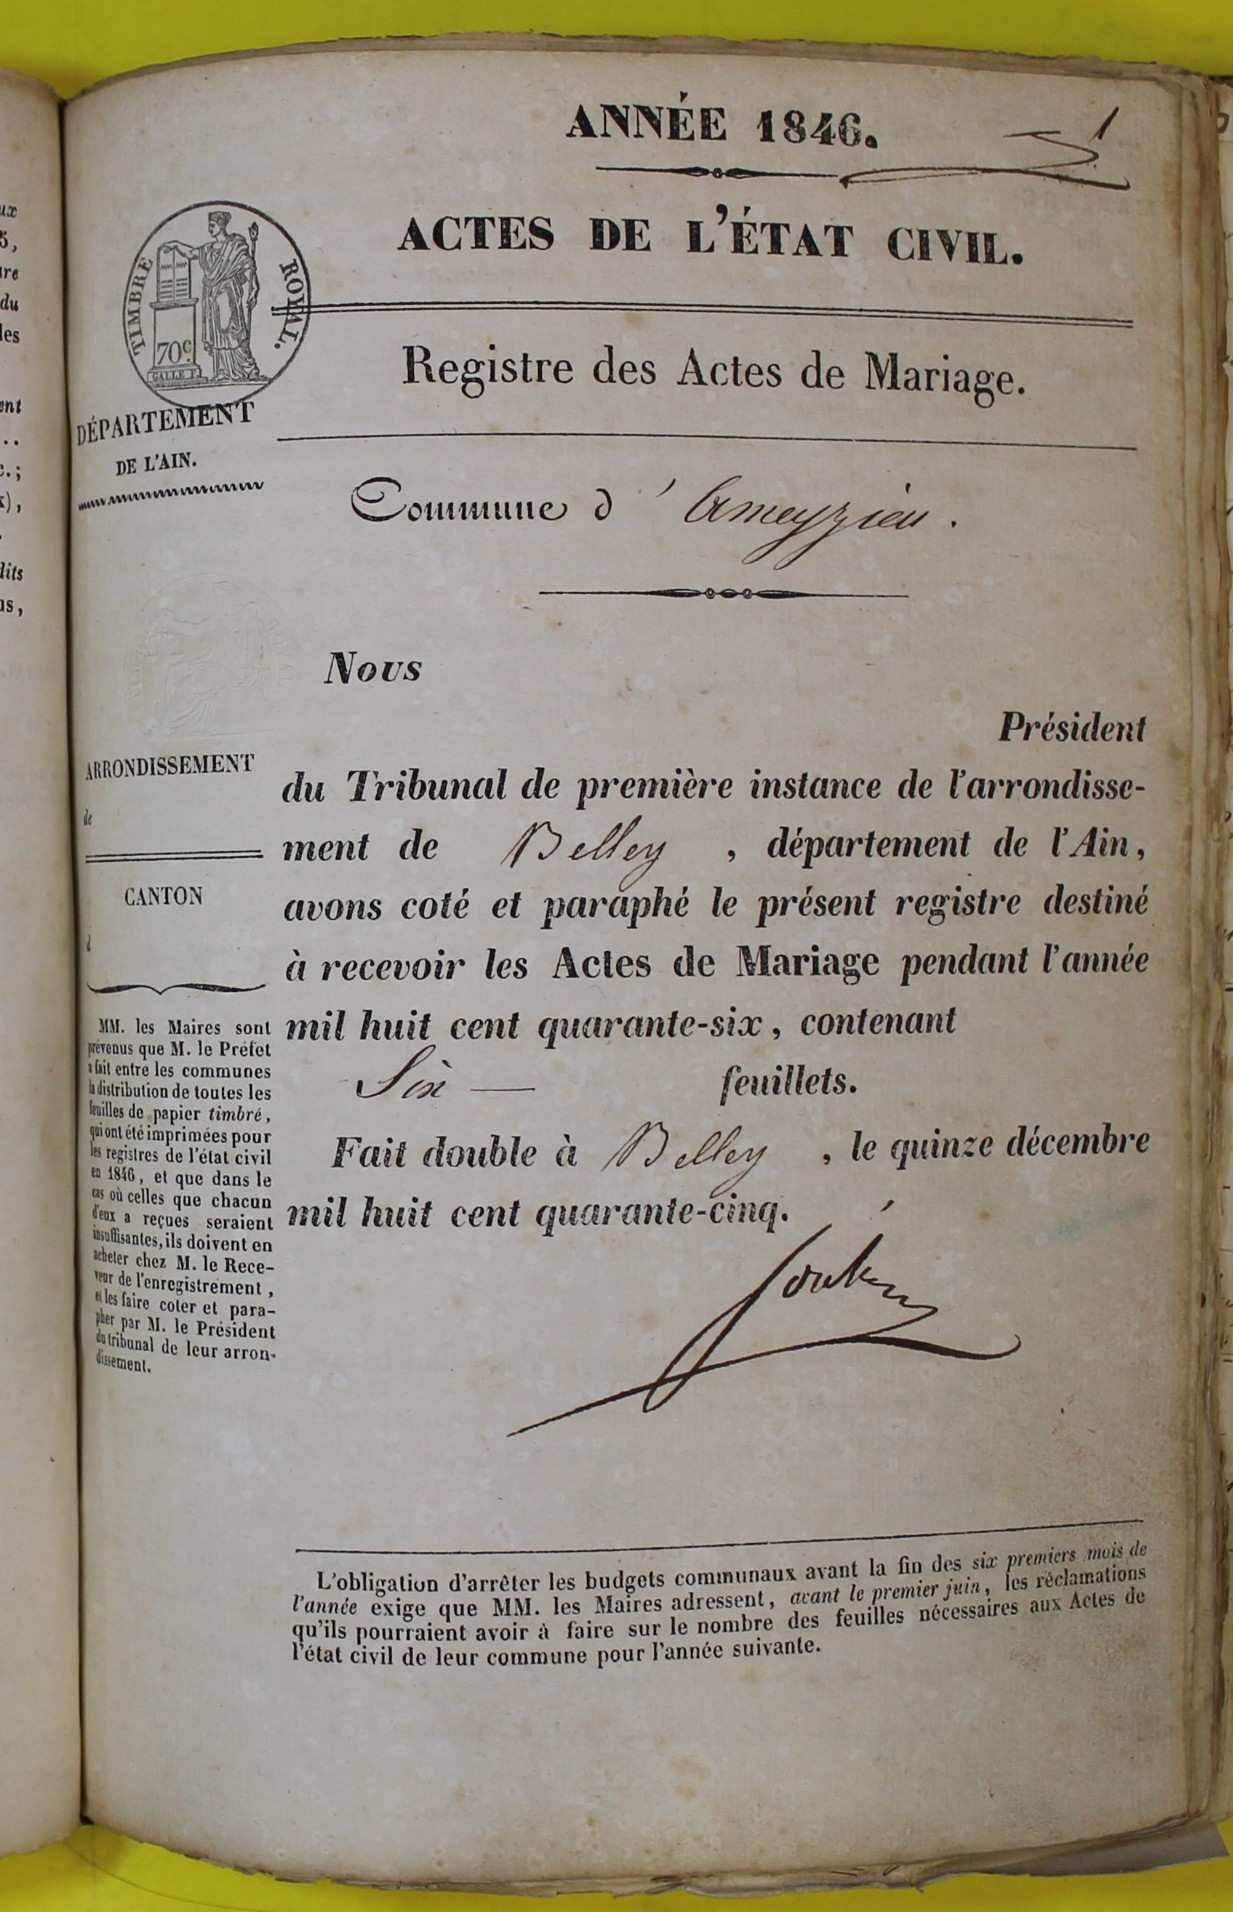 ANNÉE 1846.
1
ACTES DE L'ÉTAT CIVIL.
TIMBRE ROYAL.
70c
GALLE F.
Registre des Actes de Mariage.
DÉPARTEMENT
DE L'AIN.
Commune d'Ameyzieu.
Nous
Président
du Tribunal de première instance de l'arrondisse-
ment de Belley, département de l'Ain,
avons coté et paraphé le présent registre destiné
à recevoir les Actes de Mariage pendant l'année
mil huit cent quarante-six, contenant
Six — feuillets.
Fait double à Belley, le quinze décembre
mil huit cent quarante-cinq.
ARRONDISSEMENT
de
CANTON
d
MM. les Maires sont
prévenus que M. le Préfet
a fait entre les communes
la distribution de toutes les
feuilles de papier timbré,
qui ont été imprimées pour
les registres de l'état civil
en 1846, et que dans le
cas où celles que chacun
d'eux a reçues seraient
insuffisantes, ils doivent en
acheter chez M. le Rece-
veur de l'enregistrement,
et les faire coter et para-
pher par M. le Président
du tribunal de leur arron-
dissement.
L'obligation d'arrêter les budgets communaux avant la fin des six premiers mois de
l'année exige que MM. les Maires adressent, avant le premier juin, les réclamations
qu'ils pourraient avoir à faire sur le nombre des feuilles nécessaires aux Actes de
l'état civil de leur commune pour l'année suivante.